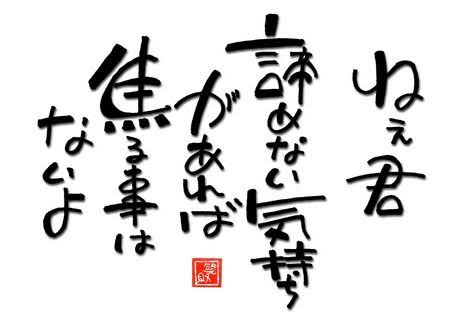 ねぇ君
諦めない気持ち
があれば
焦る事は
ないよ